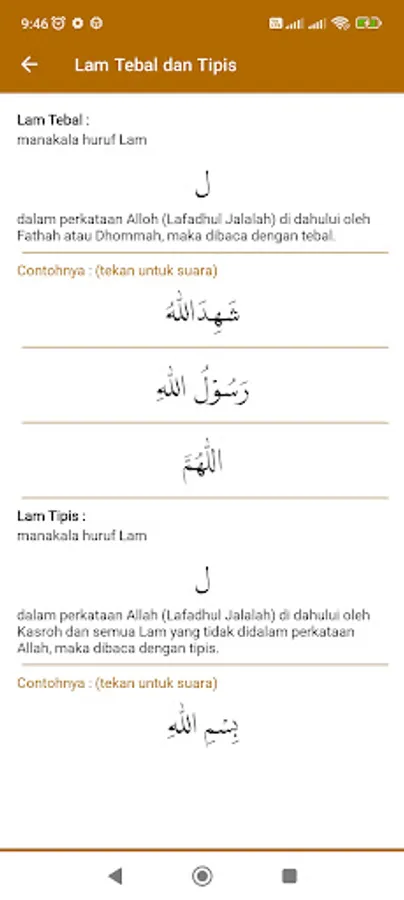 9:46
Lam Tebal dan Tipis
Lam Tebal :
manakala huruf Lam
ل
dalam perkataan Alloh (Lafadhul Jalalah) di dahului oleh
Fathah atau Dhommah, maka dibaca dengan tebal.
Contohnya : (tekan untuk suara)
شَهِدَاللّٰهُ
رَسُوْلُ اللّٰهِ
اَللّٰهُمَّ
Lam Tipis :
manakala huruf Lam
ل
dalam perkataan Allah (Lafadhul Jalalah) di dahului oleh
Kasroh dan semua Lam yang tidak didalam perkataan
Allah, maka dibaca dengan tipis.
Contohnya : (tekan untuk suara)
بِسْمِ اللّٰهِ